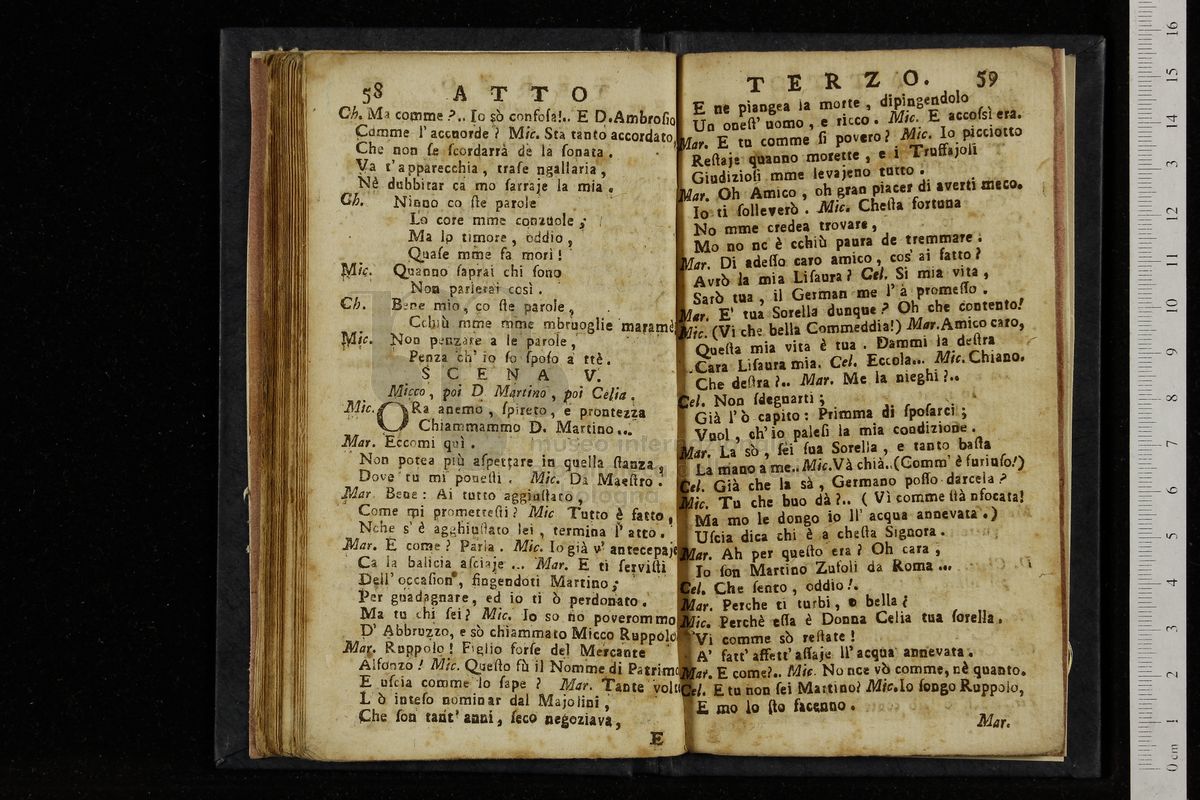 58 ATTO
Ch. Ma comme ?.. Io sò confosa!.. E D.Ambrosio
Comme l'accuorde ? Mic. Sta tanto accordato,
Che non se scordarrà de la sonata.
Va t'apparecchia, trase ngallaria,
Nè dubbitar ca mo sarraje la mia.
Ch. Ninno co ste parole
Lo core mme conzuole;
Ma lo timore, oddio,
Quase mme fa mori!
Mic. Quanno saprai chi sono
Non parlerai così.
Ch. Bene mio, co ste parole,
Cchiù mme mme mbruoglie maramè,
Mic. Non penzare a le parole,
Penza ch'io so sposo a ttè.
SCENA V.
Micco, poi D Martino, poi Celia.
Mic. ORa anemo, spireto, e prontezza
Chiammammo D. Martino...
Mar. Eccomi quì.
Non potea più aspettare in quella stanza,
Dove tu mi ponesti. Mic. Da Maestro.
Mar. Bene: Ai tutto aggiustato,
Come mi promettesti? Mic Tutto è fatto,
Nche s'è agghiustato lei, termina l'atto.
Mar. E come? Parla. Mic. Io già v'antecepaje
Ca la balicia asciaje ... Mar. E ti servisti
Dell'occasion, fingendoti Martino;
Per guadagnare, ed io ti ò perdonato.
Ma tu chi sei? Mic. Io so no poverommo
D'Abbruzzo, e sò chiammato Micco Ruppolo
Mar. Ruppolo! Figlio forse del Mercante
Alfonzo! Mic. Questo fù il Nomme di Patrimo
E uscia comme lo sape? Mar. Tante volte
L'ò inteso nominar dal Majolini,
Che son tant'anni, seco negoziava,
E
TERZO. 59
E ne piangea la morte, dipingendolo
Un onest'uomo, e ricco. Mic. E accossì era.
Mar. E tu comme sì povero? Mic. Io picciotto
Restaje quanno morette, e i Truffajoli
Giudiziosi mme levajeno tutto.
Mar. Oh Amico, oh gran piacer di averti meco.
Io ti solleverò. Mic. Chesta fortuna
No mme credea trovare,
Mo no nc è cchiù paura de tremmare.
Mar. Di adesso caro amico, cos'ai fatto?
Avrò la mia Lisaura? Cel. Si mia vita,
Sarò tua, il German me l'à promesso.
Mar. E' tua Sorella dunque? Oh che contento!
Mic. (Vi che bella Commeddia!) Mar. Amico caro,
Questa mia vita è tua. Dammi la destra
Cara Lisaura mia. Cel. Eccola... Mic. Chiano.
Che destra?.. Mar. Me la nieghi?..
Cel. Non sdegnarti;
Già l'ò capito: Primma di sposarci;
Vuol, ch'io palesi la mia condizione.
Mar. La sò, sei sua Sorella, e tanto basta
La mano a me.. Mic. Và chià..(Comm'è furiuso!)
Cel. Già che la sà, Germano posso darcela?
Mic. Tu che buo dà?.. (Vi comme stà nfocata!
Ma mo le dongo io ll'acqua annevata.)
Uscia dica chi è a chesta Signora.
Mar. Ah per questo era? Oh cara,
Io son Martino Zufoli da Roma...
Cel. Che sento, oddio!.
Mar. Perche ti turbi, o bella?
Mic. Perchè essa è Donna Celia tua sorella.
Vi comme sò restate!
A' fatt'affett'assaje ll'acqua annevata.
Mar. E come?.. Mic. No nce vò comme, nè quanto.
Cel. E tu non sei Martino? Mic. Io songo Ruppolo,
E mo lo sto facenno.
Mar.
museo internazionale
bologna